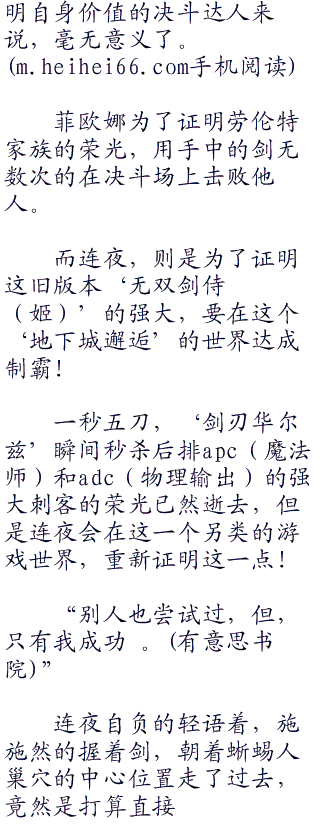 明自身价值的决斗达人来
说，毫无意义了。
(m.heihei66.com手机阅读)
菲欧娜为了证明劳伦特
家族的荣光，用手中的剑无
数次的在决斗场上击败他
人。
而连夜，则是为了证明
这旧版本‘无双剑侍
（姬）’的强大，要在这个
‘地下城邂逅’的世界达成
制霸！
一秒五刀，‘剑刃华尔
兹’瞬间秒杀后排apc（魔法
师）和adc（物理输出）的强
大刺客的荣光已然逝去，但
是连夜会在这一个另类的游
戏世界，重新证明这一点！
“别人也尝试过，但，
只有我成功 。(有意思书
院)”
连夜自负的轻语着，施
施然的握着剑，朝着蜥蜴人
巢穴的中心位置走了过去，
竟然是打算直接